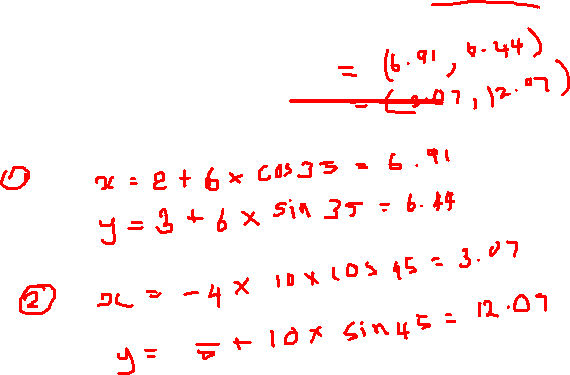 = (6.91, 6.44)
= (3.07, 12.07)
① x = 2 + 6 × cos 35 = 6.91
y = 3 + 6 × sin 35 = 6.44
② x = -4 × 10 × cos 45 = 3.07
y = 5 + 10 × sin 45 = 12.07